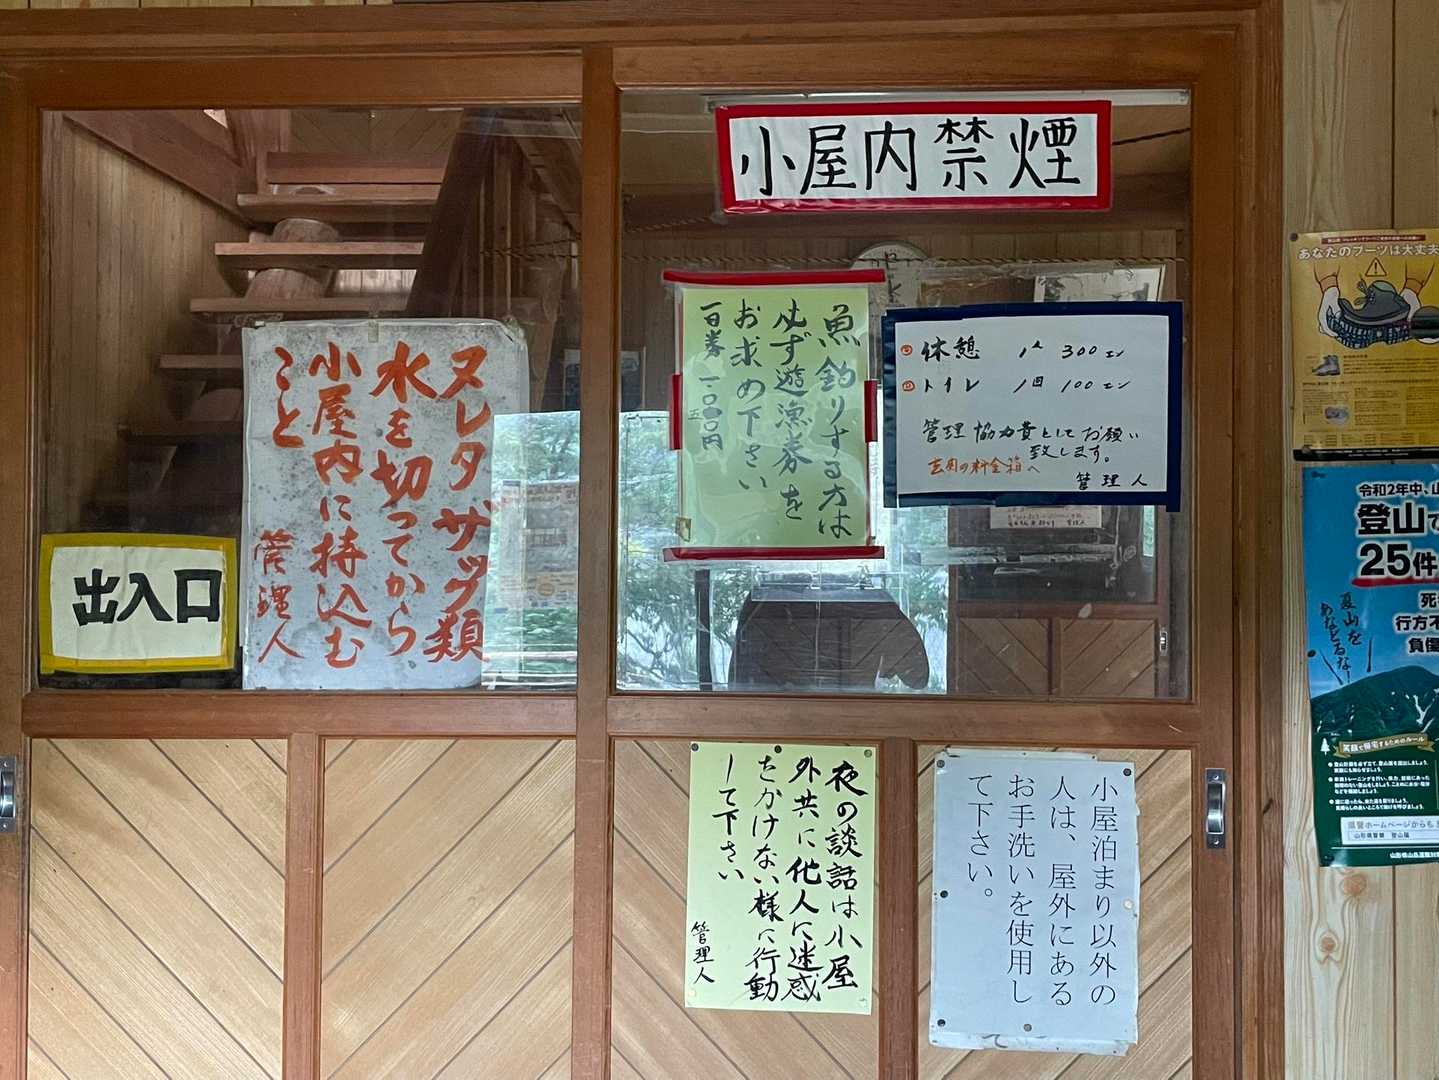 小屋内禁煙
ヌレタザック類
水を切ってから
小屋内に持込む
こと
管理人
出入口
魚釣りする方は
必ず遊漁券を
お求め下さい
休憩 1人 300エン
トイレ 1回 100エン
管理協力費としてお願い
致します。
玄関の料金箱へ
管理人
夜の談話は小屋
外共に他人に迷惑
をかけない様に行動
して下さい
管理人
小屋泊まり以外の
人は、屋外にある
お手洗いを使用し
て下さい。
あなたのブーツは大丈夫
令和2年中、山
登山で
25件
死
行方不
負傷
夏山を
あなどるな
笑顔で帰宅するためのルール
県警ホームページからも
山形県警察 登山届